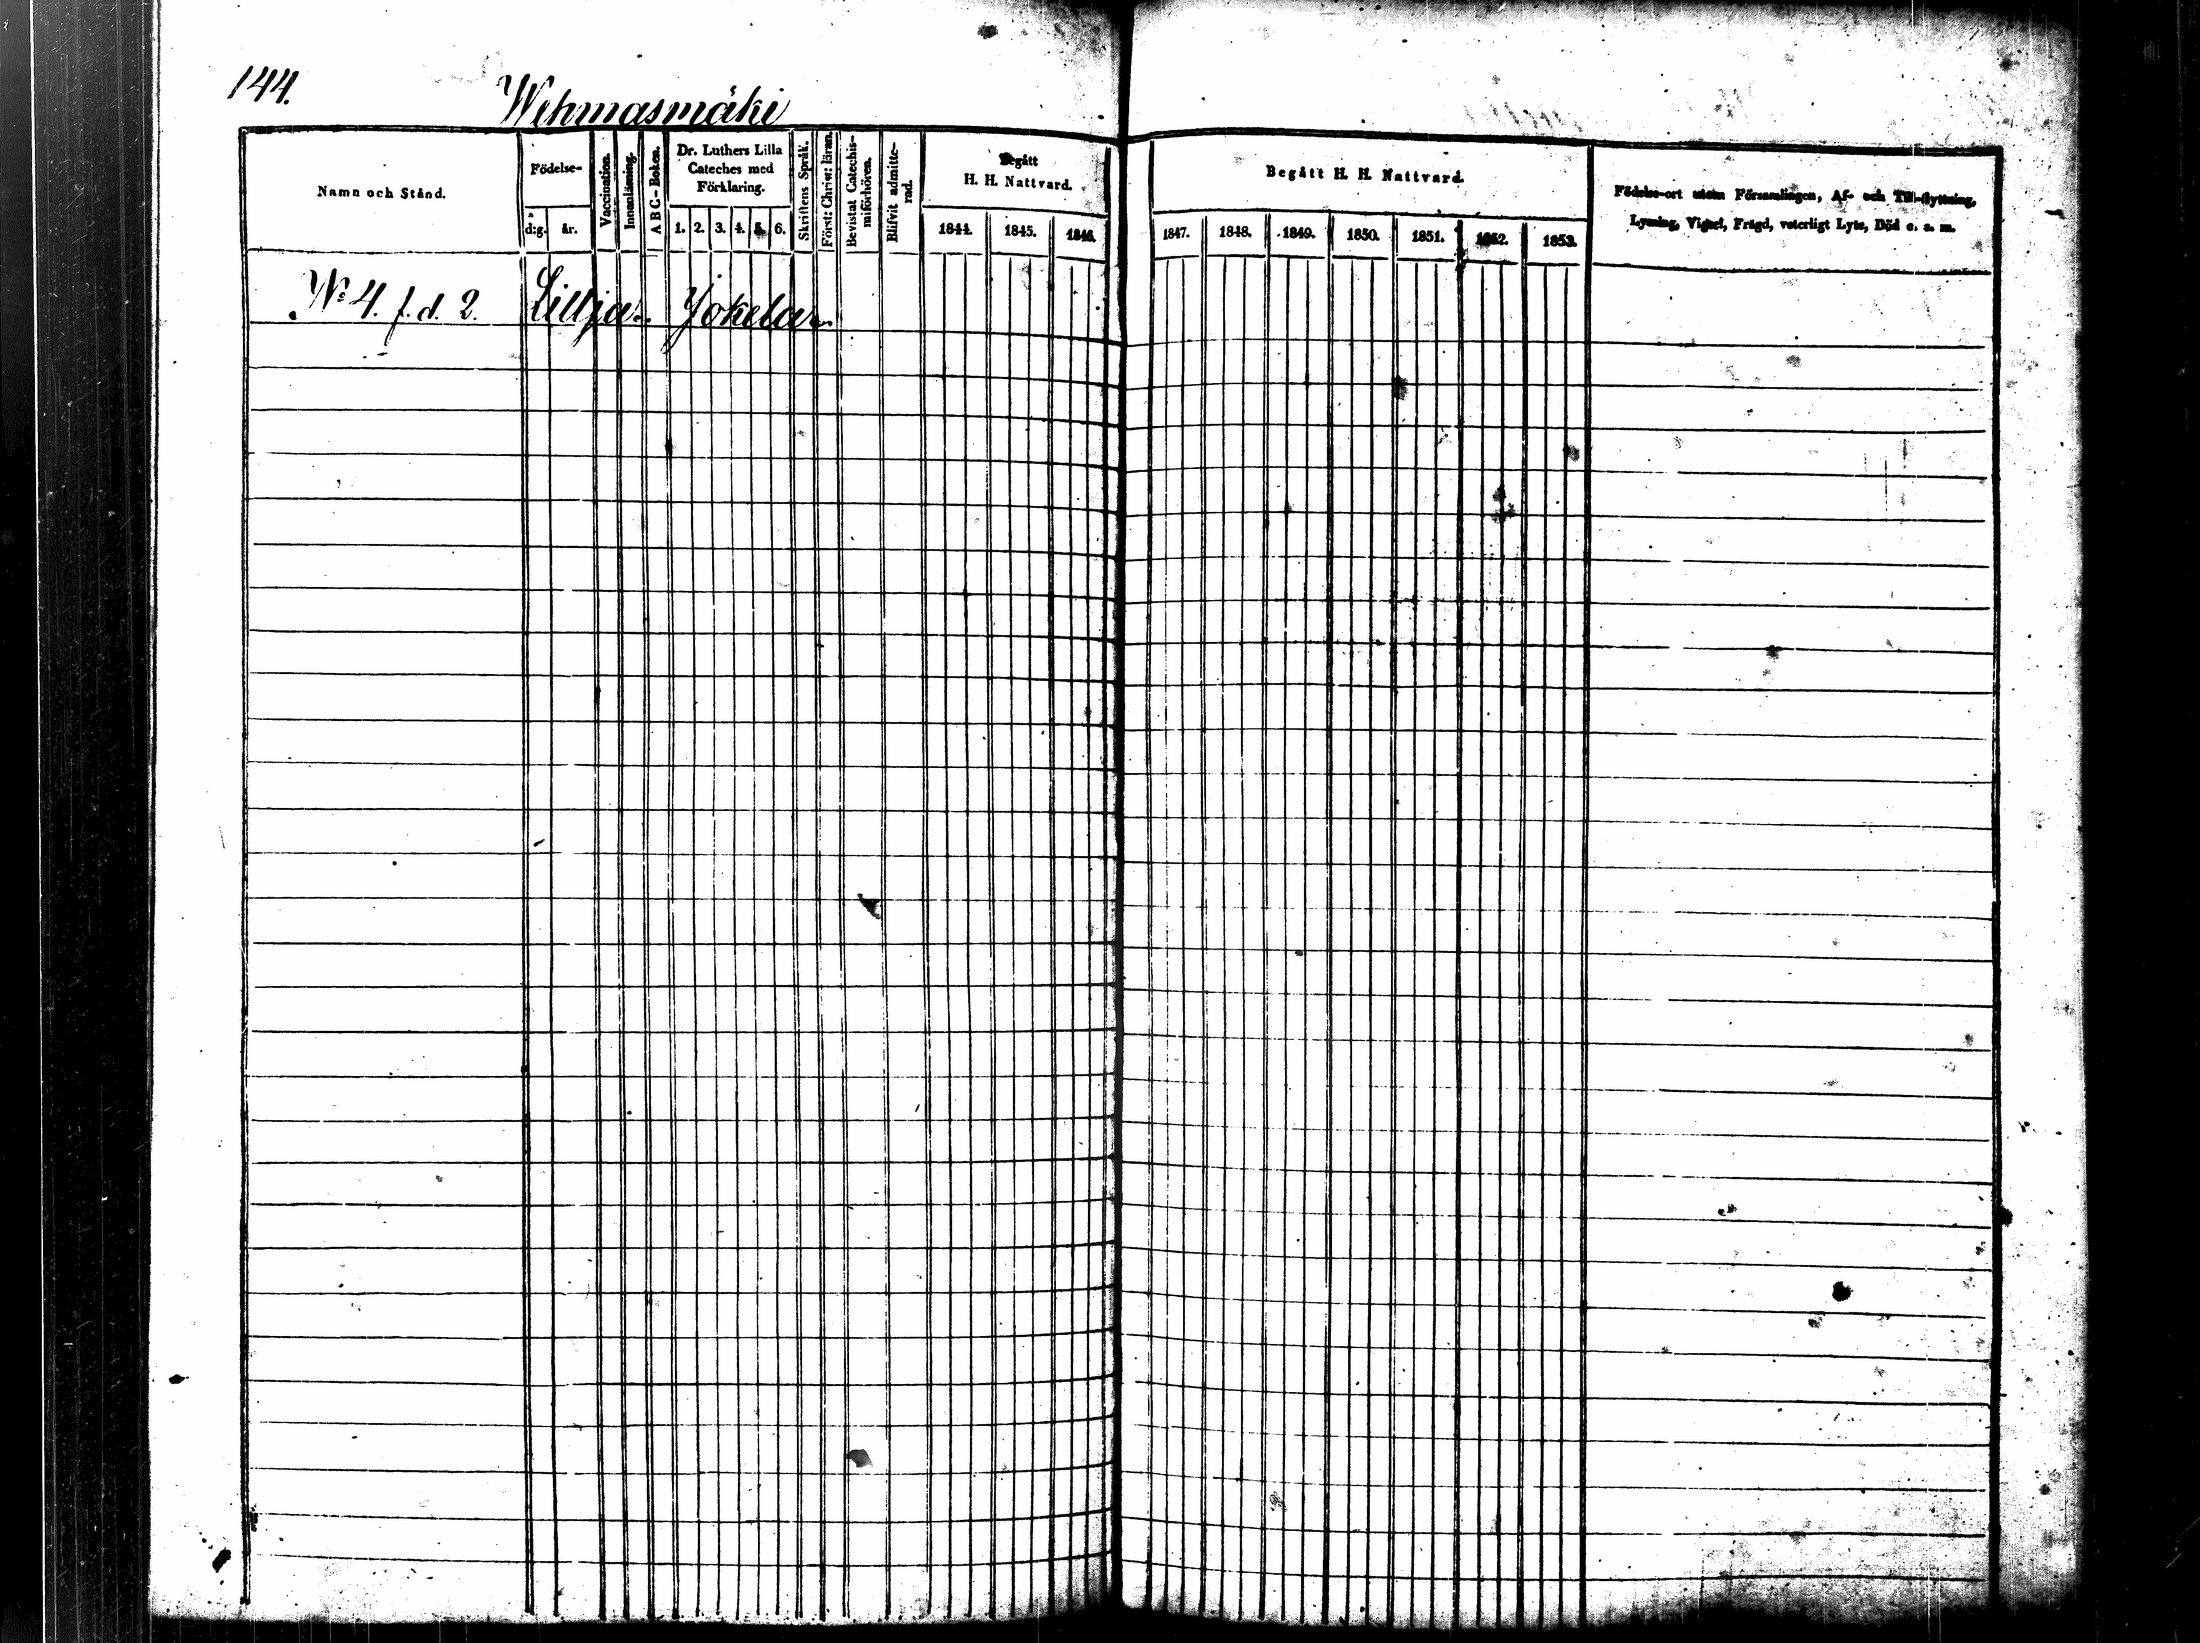 144.
Wehmasmäki
Namn och Stånd.
Födelse-
d:g.
år.
Vaccination.
Innanläsning.
A B C-Boken.
Dr. Luthers Lilla
Cateches med
Förklaring.
1. 2. 3. 4. 5. 6.
Skriftens Språk.
Först: Christ: läran.
Bevistat Catechis-
miförhören.
Blifvit admitte-
rad.
Begått
H. H. Nattvard.
1844. 1845. 1846.
Begått H. H. Nattvard.
1847. 1848. 1849. 1850. 1851. 1852. 1853.
Födelse-ort utom Församlingen, Af- och Till-flyttning,
Lysning, Vigsel, Frägd, veterligt Lyte, Död o. s. m.
No 4. f. d. 2. Jokela